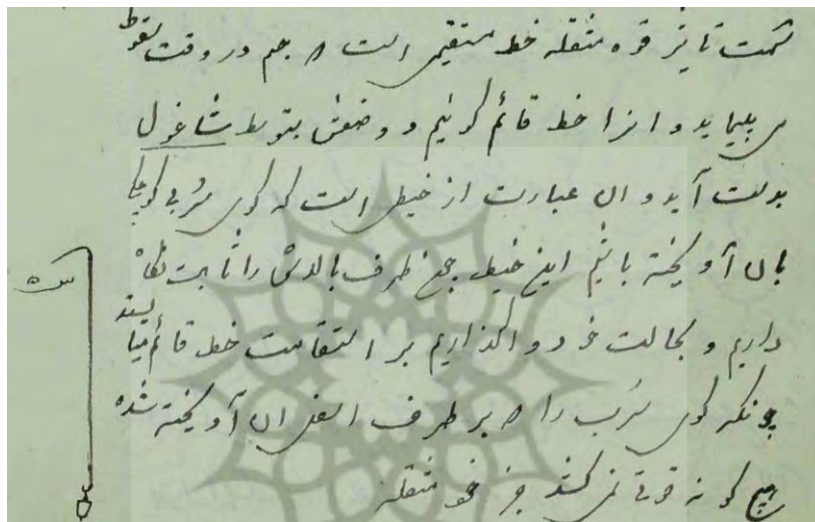 سمت تأثیر قوه مثقله خط مستقیمی است که جسم در وقت سقوط
می‌پیماید و آنرا خط قائم گوئیم و وضعش بتوسط شاغول
بدست آید و آن عبارت از خیطی است که گوی سُربی کوچکی
بآن آویخته باشیم این خیط چون طرف بالاش را ثابت نگاه
داریم و بحالت خود واگذاریم بر استقامت خط قائم میایستد
چونکه گوی سُرب را که بر طرف اسفل آن آویخته شده
هیچ گونه قوتی نمی‌کشد جز قوه مثقله